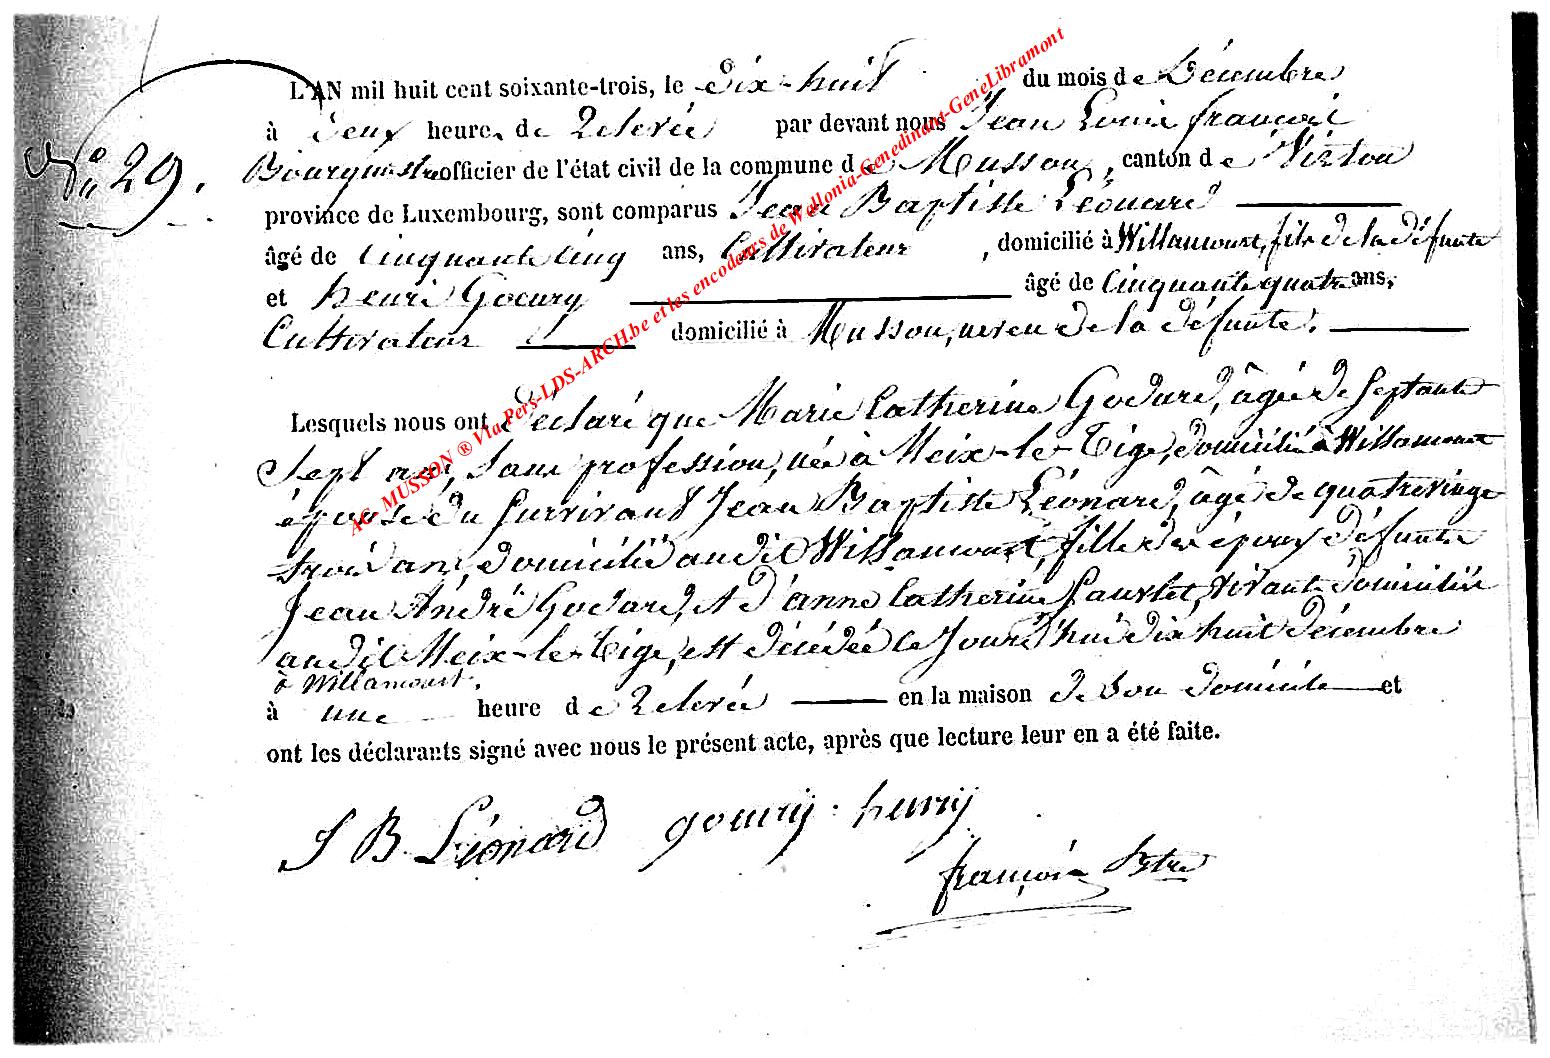 L'AN mil huit cent soixante-trois, le dix-huit du mois de Décembre
à deux heures de relevée par devant nous Jean Louis françois
N° 29. Bourguestre officier de l'état civil de la commune de Musson, canton de Virton
province de Luxembourg, sont comparus Jean Baptiste Léonard
âgé de Cinquante Cinq ans, Cultivateur, domicilié à Willancourt, fils de la défunte
et henri Goeury âgé de Cinquante quatre ans,
Cultivateur domicilié à Musson, neveu de la défunte.
Lesquels nous ont déclaré que Marie Catherine Godard, âgée de septante
sept ans, sans profession, née à Meix-le-Tige, domiciliée à Willancourt
épouse du survivant Jean Baptiste Léonard, âgé de quatrevingt
trois ans, domicilié audit Willancourt, fille des époux défunts
Jean André Godard, et d'anne Catherine, vivants domiciliés
audit Meix-le-Tige, est décédée le Jourd'hui dix huit décembre
à Willancourt.
à une heure de relevée en la maison de son domicile et
ont les déclarants signé avec nous le présent acte, après que lecture leur en a été faite.
J B Léonard goeury henry
françois
AC MUSSON ® Via Pers-LDS-ARCH.be et les encodeurs de Wallonia-Genedinant-GeneLibramont